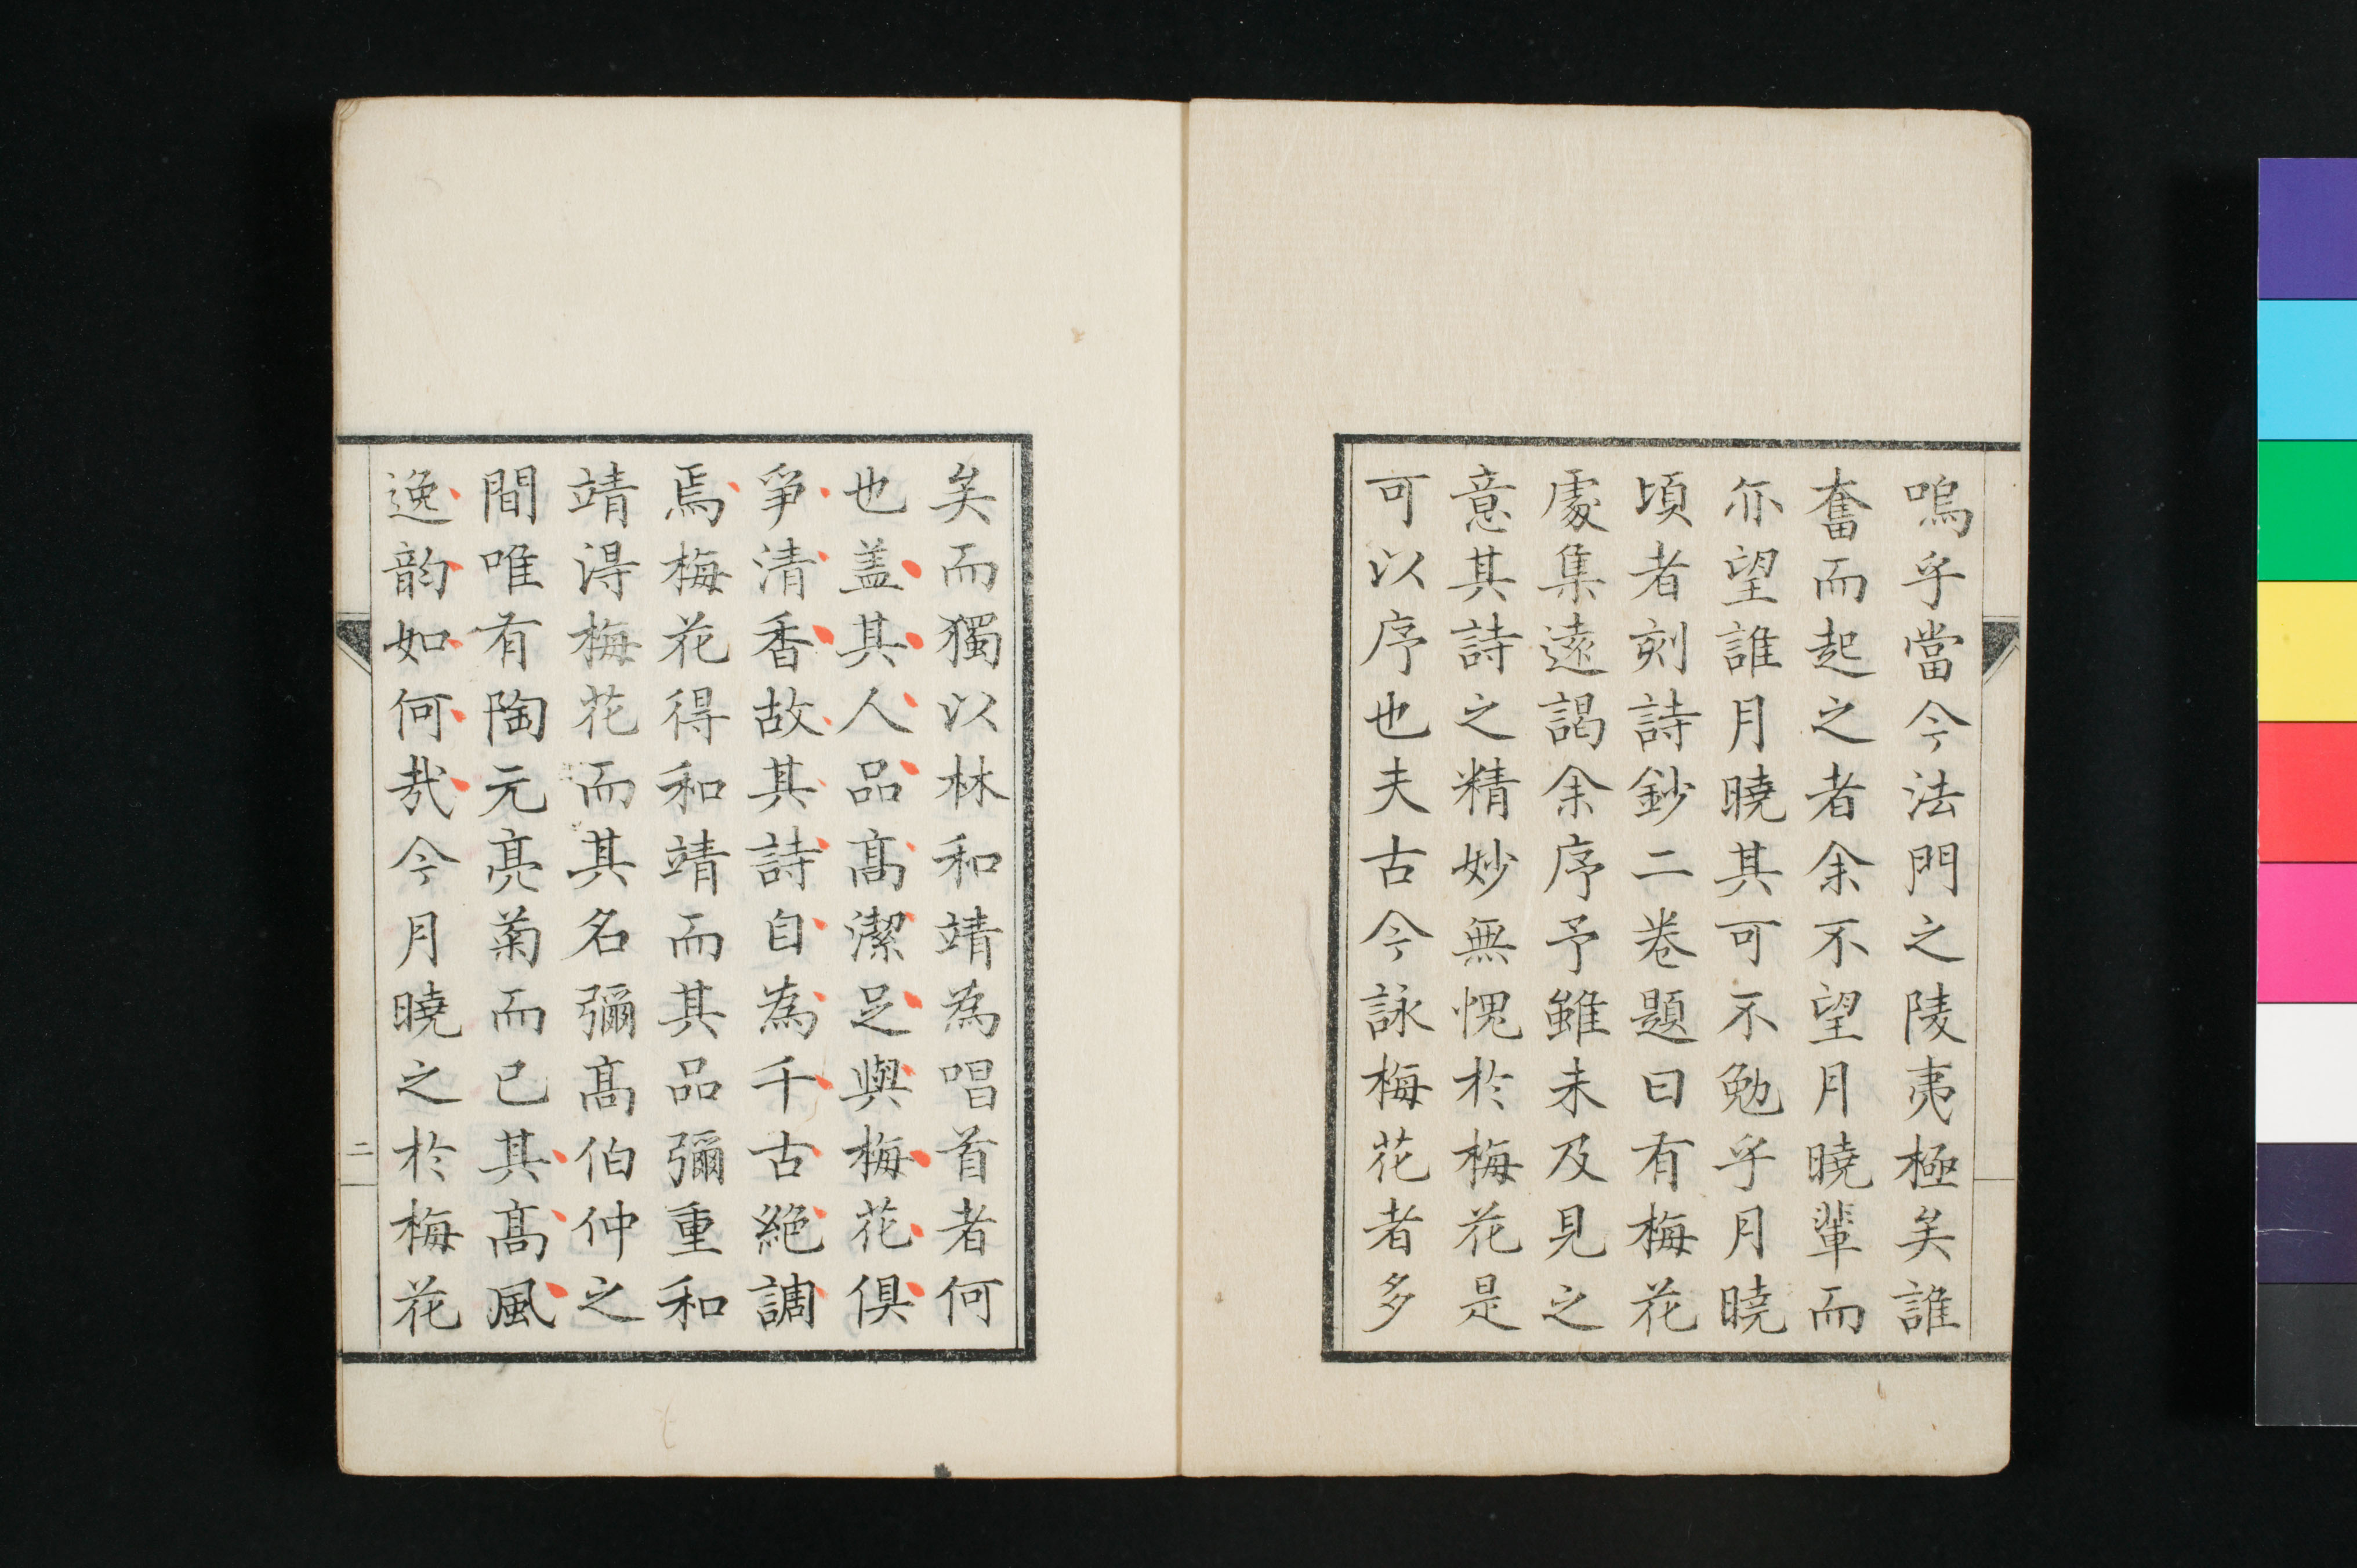 嗚乎當今法門之陵夷極矣誰
奮而起之者余不望月曉輩而
亦望誰月曉其可不勉乎月曉
頃者刻詩鈔二卷題曰有梅花
處集遠謁余序予雖未及見之
意其詩之精妙無愧於梅花是
可以序也夫古今詠梅花者多
矣而獨以林和靖為唱首者何
也盖其人品髙潔足與梅花俱
爭清香故其詩自為千古絶調
焉梅花得和靖而其品彌重和
靖淂梅花而其名彌髙伯仲之
間唯有陶元亮菊而已其髙風
逸韵如何哉今月曉之於梅花
二